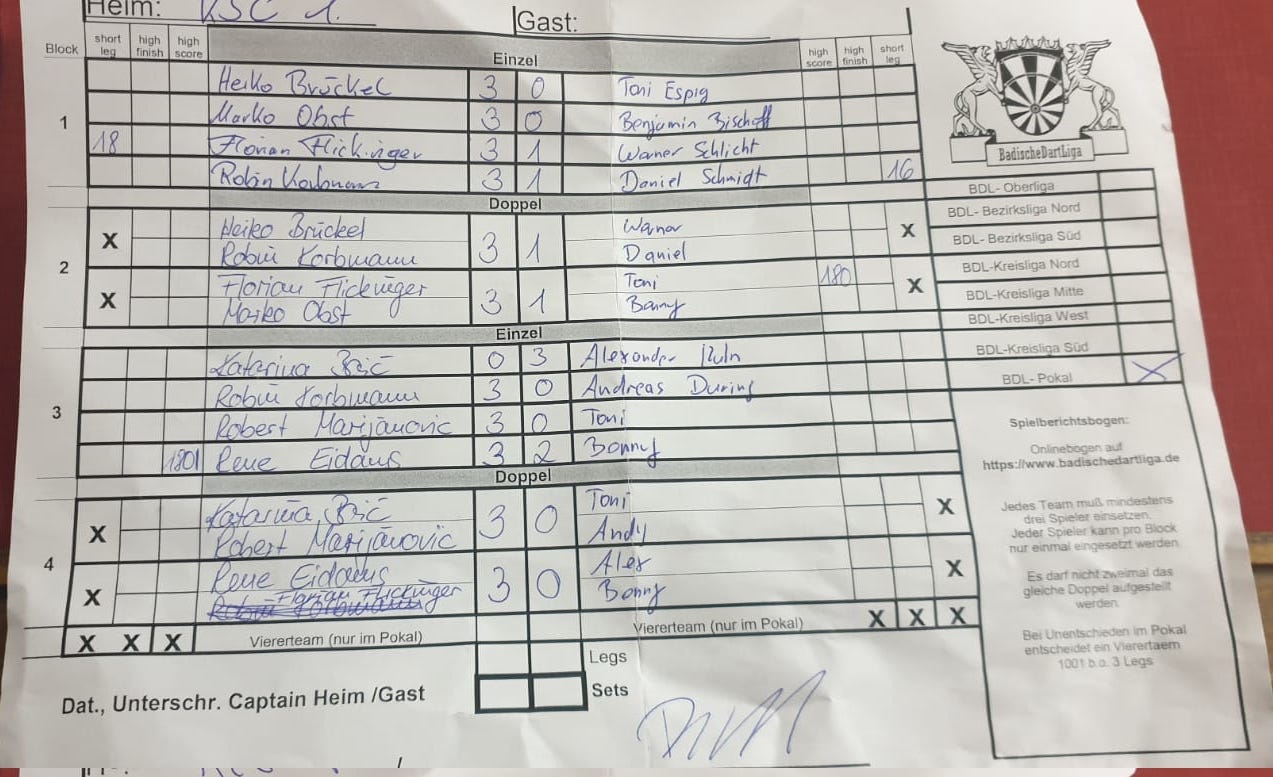 Heim: KSC 1. Gast:
Block short leg high finish high score Einzel high score high finish short leg
1
Heiko Brückel 3 0 Toni Espig
Marko Obst 3 0 Benjamin Bischoff
18 Florian Flickinger 3 1 Warner Schlicht
Robin Korbmann 3 1 Daniel Schmidt 16
BadischeDartLiga
Doppel
2
X Heiko Brückel 3 1 Warner X
Robin Korbmann Daniel
X Florian Flickinger 3 1 Toni 180 X
Marko Obst Benny
Einzel
3
Katarina 0 3 Alexander
Robin Korbmann 3 0 Andreas During
Robert Marijanovic 3 0 Toni
180 Rene Eidams 3 2 Benny
Doppel
4
X Katarina 3 0 Toni X
Robert Marijanovic Andy
X Rene Eidams 3 0 Alex X
Florian Flickinger Benny
X X X Vierterteam (nur im Pokal) Vierterteam (nur im Pokal) X X X
Legs
Sets
Dat., Unterschr. Captain Heim /Gast
BDL- Oberliga
BDL- Bezirksliga Nord
BDL- Bezirksliga Süd
BDL-Kreisliga Nord
BDL-Kreisliga Mitte
BDL-Kreisliga West
BDL-Kreisliga Süd
BDL- Pokal X
Spielberichtsbogen:
Onlinebogen auf
https://www.badischedartliga.de
Jedes Team muß mindestens
drei Spieler einsetzen.
Jeder Spieler kann pro Block
nur einmal eingesetzt werden.
Es darf nicht zweimal das
gleiche Doppel aufgestellt
werden.
Bei Unentschieden im Pokal
entscheidet ein Vierertaem
1001 b.o. 3 Legs